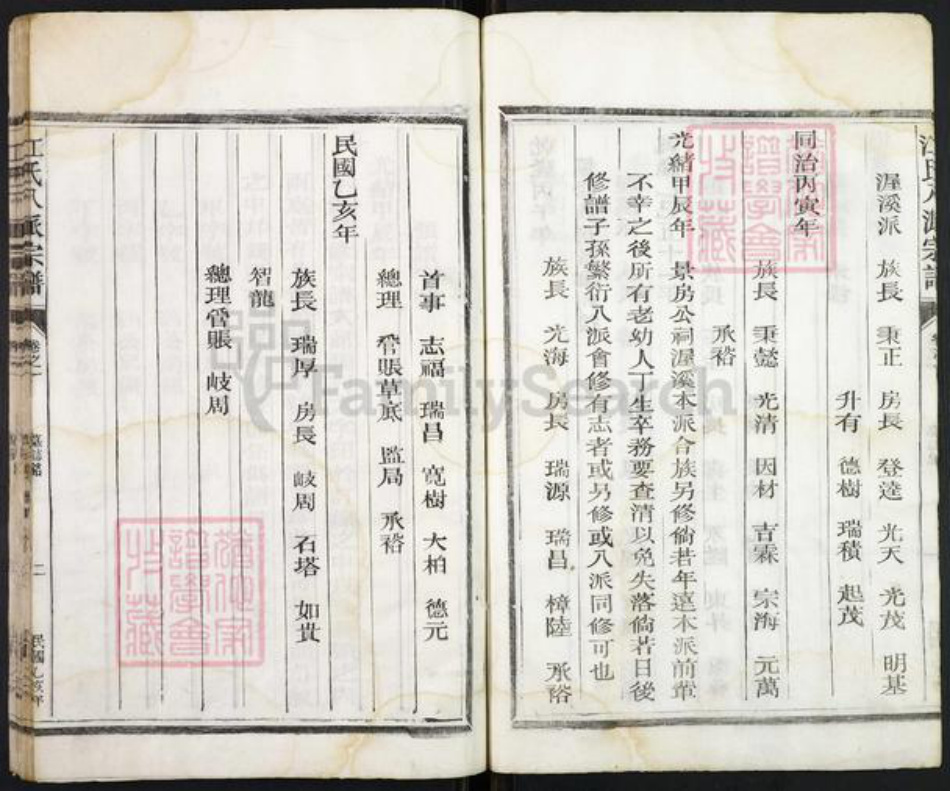 渥溪派 族長 秉正 房長 登逵 光天 光茂 明基
升有 德樹 瑞積 起茂
同治丙寅年
族長 秉懿 光清 因材 吉霖 宗海 元萬
承裕
光緒甲辰年 景房公祠渥溪本派合族另修倘若年遠本派前輩
不幸之後所有老幼人丁生卒務要查清以免失落倘若日後
修譜子孫繁衍八派會修有志者或另修或八派同修可也
族長 光海 房長 瑞源 瑞昌 樟陸 承裕
首事 志福 瑞昌 寬樹 大柏 德元
總理 管賬草底 監局 承裕
民國乙亥年
族長 瑞厚 房長 岐周 石塔 如貴
智龍
總理管賬 岐周
江氏八派宗譜 卷之一 墓誌銘 二 民國乙亥年
江氏八派宗譜
譜學會
收藏
譜學會
收藏
FamilySearch